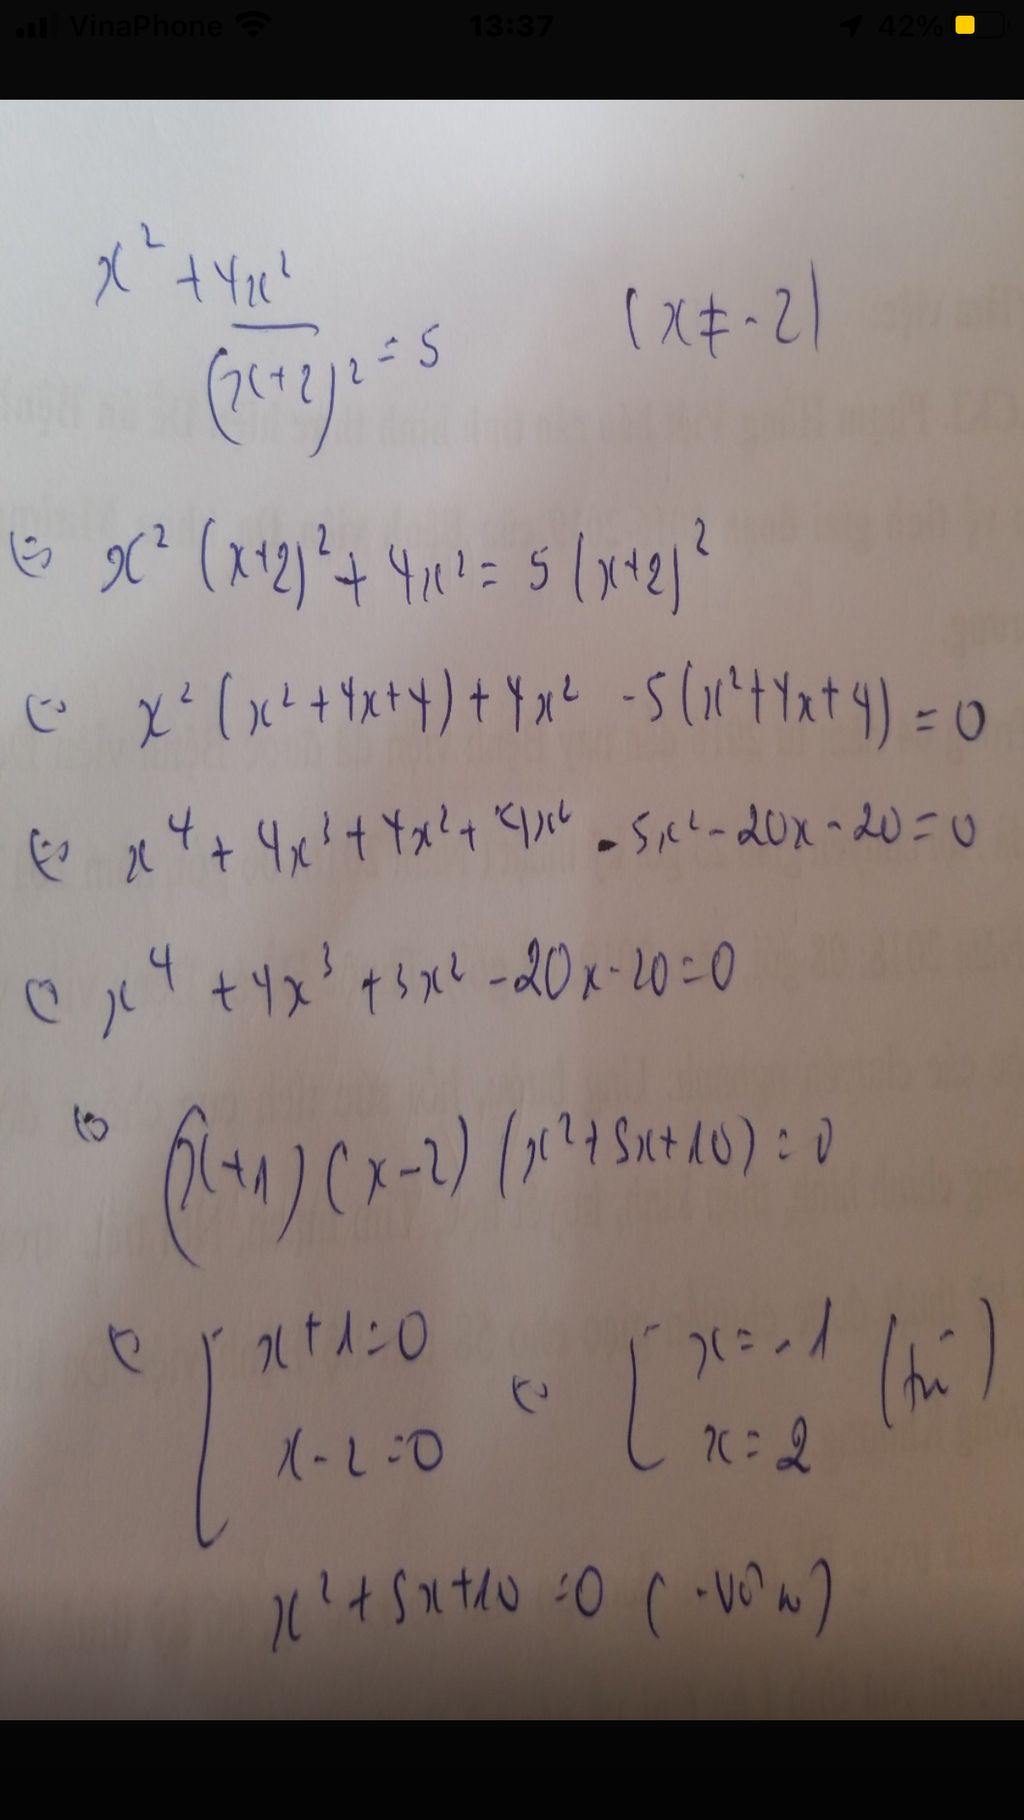 VinaPhone 13:37 42%
x² + 4x²/(x+2)² = 5 (x ≠ -2)
⇔ x² (x+2)² + 4x² = 5 (x+2)²
⇔ x² (x² + 4x + 4) + 4x² - 5 (x² + 4x + 4) = 0
⇔ x⁴ + 4x³ + 4x² + 4x² - 5x² - 20x - 20 = 0
⇔ x⁴ + 4x³ + 3x² - 20x - 20 = 0
⇔ (x+1) (x-2) (x² + 5x + 10) = 0
⇔ [ x + 1 = 0 ⇔ [ x = -1
x - 2 = 0 x = 2
x² + 5x + 10 = 0